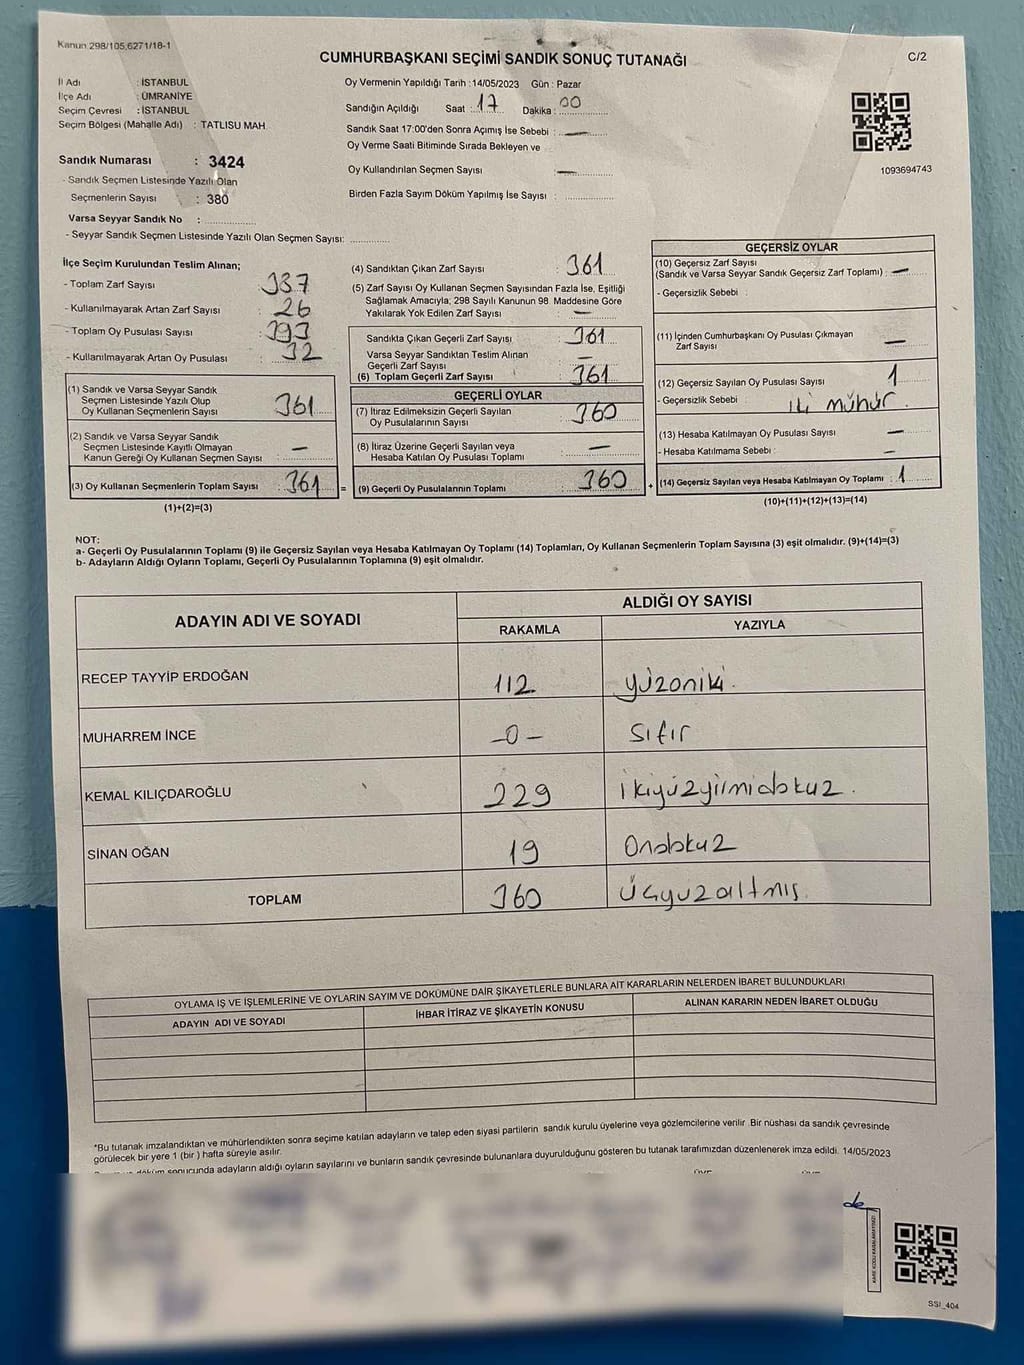 Kanun:298/105,6271/18-1
C/2
CUMHURBAŞKANI SEÇİMİ SANDIK SONUÇ TUTANAĞI
İl Adı : İSTANBUL
İlçe Adı : ÜMRANİYE
Seçim Çevresi : İSTANBUL
Seçim Bölgesi (Mahalle Adı) : TATLISU MAH.
Sandık Numarası : 3424
- Sandık Seçmen Listesinde Yazılı Olan
Seçmenlerin Sayısı : 380
Varsa Seyyar Sandık No :
- Seyyar Sandık Seçmen Listesinde Yazılı Olan Seçmen Sayısı:
Oy Vermenin Yapıldığı Tarih :14/05/2023 Gün : Pazar
Sandığın Açıldığı Saat : 17 Dakika : 00
Sandık Saat 17:00'den Sonra Açımış İse Sebebi : —
Oy Verme Saati Bitiminde Sırada Bekleyen ve
Oy Kullandırılan Seçmen Sayısı : —
Birden Fazla Sayım Döküm Yapılmış İse Sayısı :
1093694743
İlçe Seçim Kurulundan Teslim Alınan;
- Toplam Zarf Sayısı : 387
- Kullanılmayarak Artan Zarf Sayısı : 26
- Toplam Oy Pusulası Sayısı : 393
- Kullanılmayarak Artan Oy Pusulası : 32
(1) Sandık ve Varsa Seyyar Sandık
Seçmen Listesinde Yazılı Olup
Oy Kullanan Seçmenlerin Sayısı : 361
(2) Sandık ve Varsa Seyyar Sandık
Seçmen Listesinde Kayıtlı Olmayan
Kanun Gereği Oy Kullanan Seçmen Sayısı : —
(3) Oy Kullanan Seçmenlerin Toplam Sayısı : 361 =
(1)+(2)=(3)
(4) Sandıktan Çıkan Zarf Sayısı : 361
(5) Zarf Sayısı Oy Kullanan Seçmen Sayısından Fazla İse, Eşitliği
Sağlamak Amacıyla; 298 Sayılı Kanunun 98. Maddesine Göre
Yakılarak Yok Edilen Zarf Sayısı : —
Sandıkta Çıkan Geçerli Zarf Sayısı : 361
Varsa Seyyar Sandıktan Teslim Alınan
Geçerli Zarf Sayısı : —
(6) Toplam Geçerli Zarf Sayısı : 361
GEÇERLİ OYLAR
(7) İtiraz Edilmeksizin Geçerli Sayılan
Oy Pusulalarının Sayısı : 360
(8) İtiraz Üzerine Geçerli Sayılan veya
Hesaba Katılan Oy Pusulası Toplamı : —
(9) Geçerli Oy Pusulalarının Toplamı : 360 +
GEÇERSİZ OYLAR
(10) Geçersiz Zarf Sayısı
(Sandık ve Varsa Seyyar Sandık Geçersiz Zarf Toplamı) : —
- Geçersizlik Sebebi :
(11) İçinden Cumhurbaşkanı Oy Pusulası Çıkmayan
Zarf Sayısı : —
(12) Geçersiz Sayılan Oy Pusulası Sayısı : 1
- Geçersizlik Sebebi : iki mühür.
(13) Hesaba Katılmayan Oy Pusulası Sayısı : —
- Hesaba Katılmama Sebebi : —
(14) Geçersiz Sayılan veya Hesaba Katılmayan Oy Toplamı : 1
(10)+(11)+(12)+(13)=(14)
NOT:
a- Geçerli Oy Pusulalarının Toplamı (9) ile Geçersiz Sayılan veya Hesaba Katılmayan Oy Toplamı (14) Toplamları, Oy Kullanan Seçmenlerin Toplam Sayısına (3) eşit olmalıdır. (9)+(14)=(3)
b- Adayların Aldığı Oyların Toplamı, Geçerli Oy Pusulalarının Toplamına (9) eşit olmalıdır.
ADAYIN ADI VE SOYADI
ALDIĞI OY SAYISI
RAKAMLA YAZIYLA
RECEP TAYYİP ERDOĞAN 112 yüzoniki.
MUHARREM İNCE -0- Sıfır
KEMAL KILIÇDAROĞLU 229 ikiyüzyirmidokuz.
SİNAN OĞAN 19 Ondokuz
TOPLAM 360 Üçyüzaltmış.
OYLAMA İŞ VE İŞLEMLERİNE VE OYLARIN SAYIM VE DÖKÜMÜNE DAİR ŞİKAYETLERLE BUNLARA AİT KARARLARIN NELERDEN İBARET BULUNDUKLARI
ADAYIN ADI VE SOYADI İHBAR İTİRAZ VE ŞİKAYETİN KONUSU ALINAN KARARIN NEDEN İBARET OLDUĞU
*Bu tutanak imzalandıktan ve mühürlendikten sonra seçime katılan adayların ve talep eden siyasi partilerin sandık kurulu üyelerine veya gözlemcilerine verilir. Bir nüshası da sandık çevresinde
görülecek bir yere 1 (bir) hafta süreyle asılır.
döküm sonucunda adayların aldığı oyların sayılarını ve bunların sandık çevresinde bulunanlara duyurulduğunu gösteren bu tutanak tarafımızdan düzenlenerek imza edildi. 14/05/2023
SSI_404